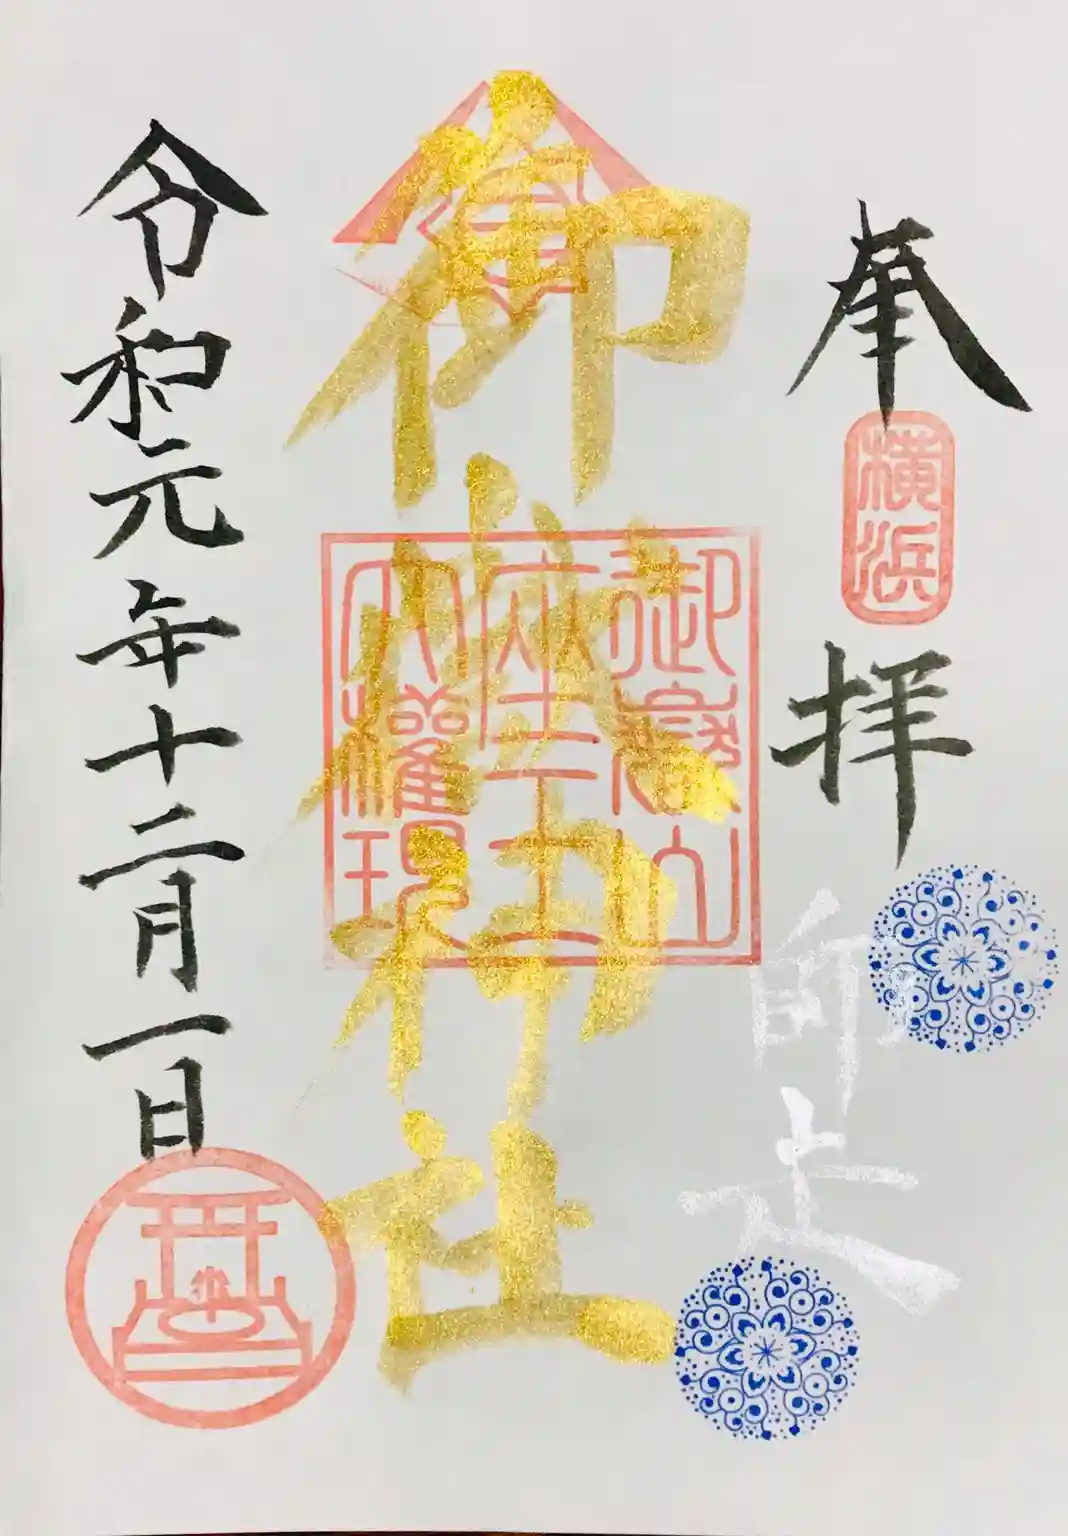 奉拝
横浜
師走
御嶽神社
御嶽山
座王
大權現
令和元年十二月一日